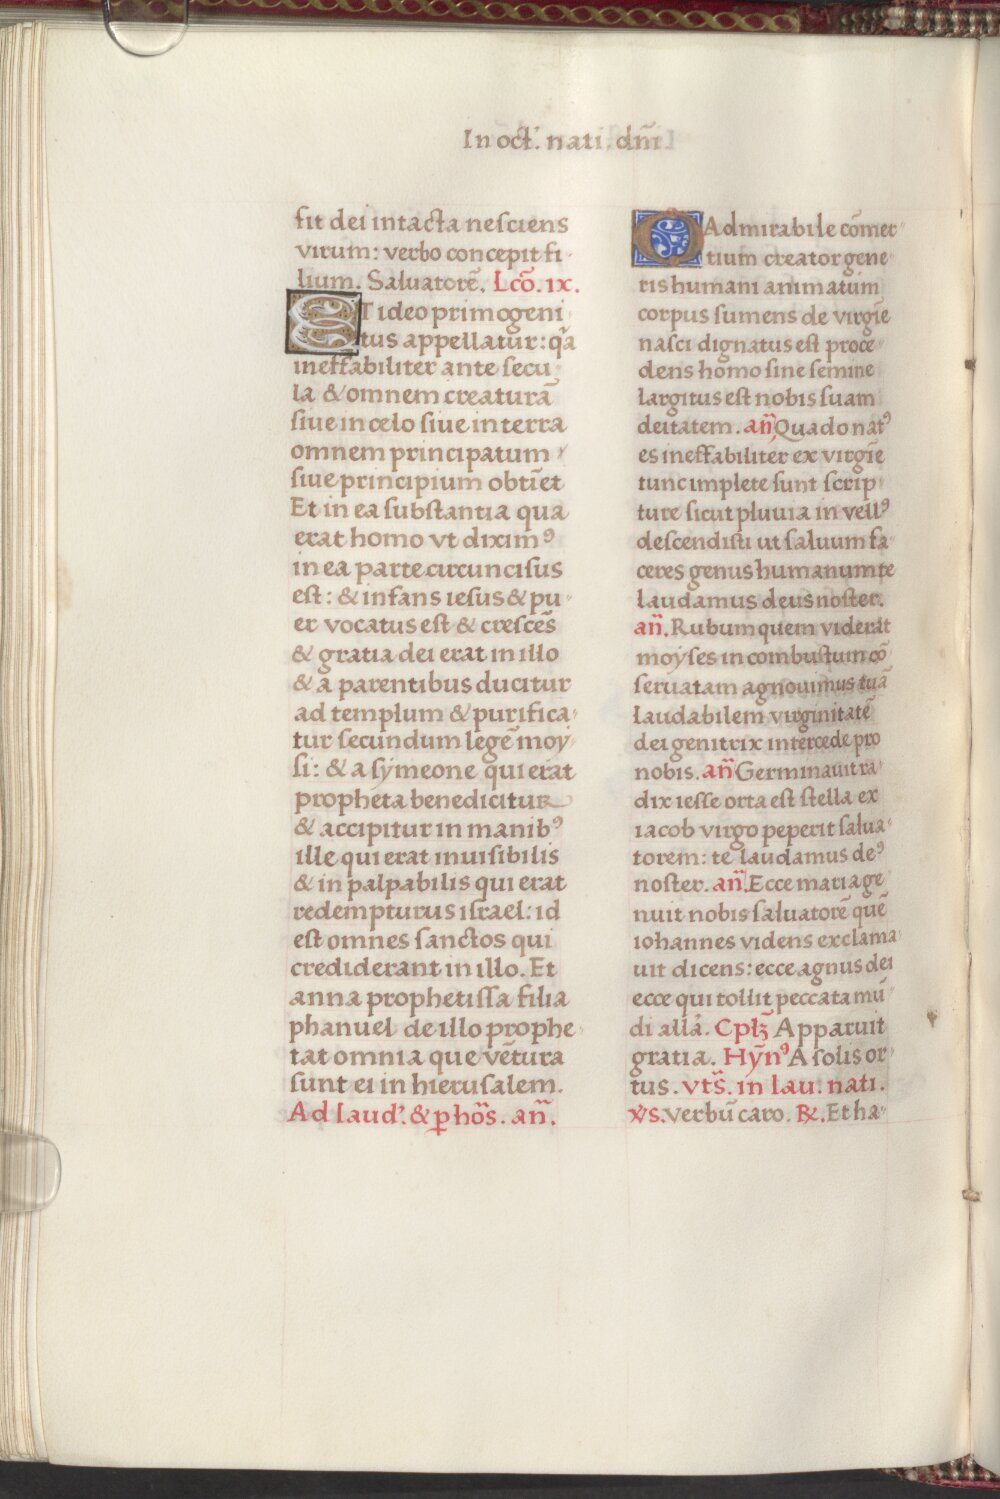 In oct'. nati. dñi.
sit dei intacta nesciens
virum: verbo concepit fi-
lium. Saluatorē. Lcõ. ix.
ET ideo primogeni-
tus appellatur: qã
ineffabiliter ante secu-
la & omnem creaturã
siue in celo siue in terra
omnem principatum
siue principium obtīet
Et in ea substantia qua
erat homo vt diximꝰ
in ea parte circuncisus
est: & infans iesus & pu-
er vocatus est & crescēs
& gratia dei erat in illo
& a parentibus ducitur
ad templum & purifica-
tur secundum legē moy-
si: & a symeone qui erat
propheta benedicitur
& accipitur in manibꝰ
ille qui erat inuisibilis
& in palpabilis qui erat
redempturus israel: id
est omnes sanctos qui
crediderant in illo. Et
anna prophetissa filia
phanuel de illo prophe-
tat omnia que vētura
sunt ei in hierusalem.
Ad laud'. & ꝑ hõs. añ.
O Admirabile cõmer-
tium creator gene-
ris humani animatum
corpus sumens de virgīe
nasci dignatus est proce-
dens homo sine semine
largitus est nobis suam
deitatem. añ Quado natꝰ
es ineffabiliter ex virgīe
tunc implete sunt scrip-
ture sicut pluuia in vellꝰ
descendisti ut saluum fa-
ceres genus humanum te
laudamus deus noster.
añ. Rubum quem viderat
moyses in combustum cõ-
seruatam agnouimus tuã
laudabilem virginitatē
dei genitrix intercede pro
nobis. añ Germinauit ra-
dix iesse orta est stella ex
iacob virgo peperit salua-
torem: te laudamus deꝰ
noster. añ. Ecce maria ge-
nuit nobis saluatorē quē
iohannes videns exclama-
uit dicens: ecce agnus dei
ecce qui tollit peccata mū-
di alla. Cpłꝫ Apparuit
gratia. Hỹnꝰ A solis or-
tus. vts̃. in lau. nati.
℣s. verbū caro. ℞. Et ha-